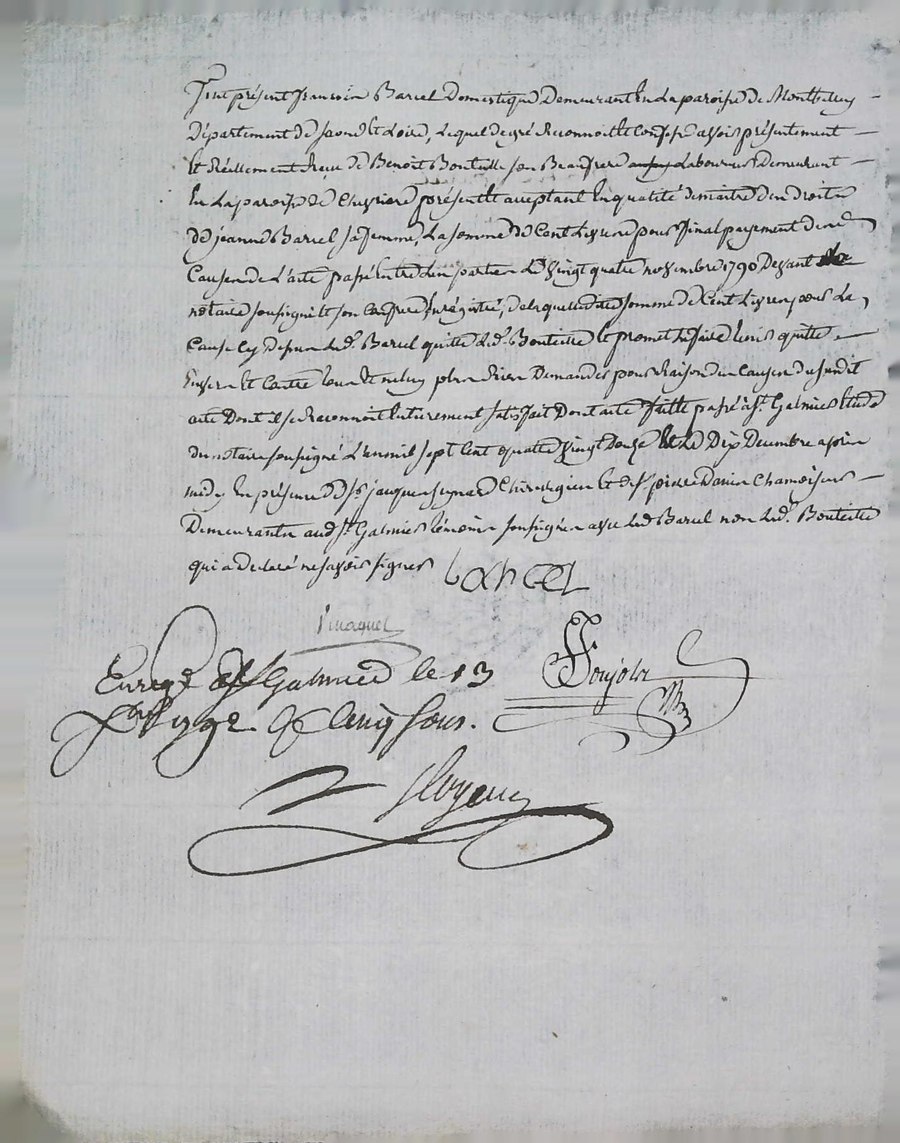 Fut présent francois Barcel Domestique Demeurant En La paroisse de Montbellay
Département de Saone Et Loire, Lequel de gré Reconnoit Et Confesse avoir présentement
Et Réellement Reçu de Benoit Bouteille son Beaufrere Laboureur Demeurant
En La paroisse de Chevriere présent Et aceptant En qualité de maitre des droits
de jeanne Barcel sa femme, La somme de Cent Livres pour final payement de
Causes de L'acte passé Entre Les parties Le vingt quatre novembre 1790 Devant Le
notaire soussigné Et son Confrere Enregistré, de laquelle ditte somme de Cent Livres pour La
Cause Cy dessus Led. Barcel quitte Led. Bouteille Et promet Le faire tenir quitte
Envers Et Contre tous Et ne luy plus Rien Demander pour Raison des Causes du susdit
acte Dont il se Reconnoit Entierement satisfait Dont acte fait Et passé à St. Galmier Etude
du notaire soussigné L'an mil sept Cent quatre vingt Douze Et Le Dix Decembre après
midy En présence de Sr. jacques Chirurgien Et de Sr. pierre Danier Chamoiseur
Demeurants aud. St. Galmier témoins soussignés avec Led. Barcel non Led. Bouteille
qui a Déclaré ne savoir signer
barcel
Enregé à St Galmier le 13
Xbre 1792 R Cinq sous.